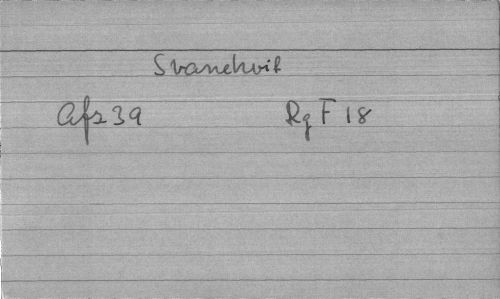 Svanehvit
Afs 39 Rg F 18